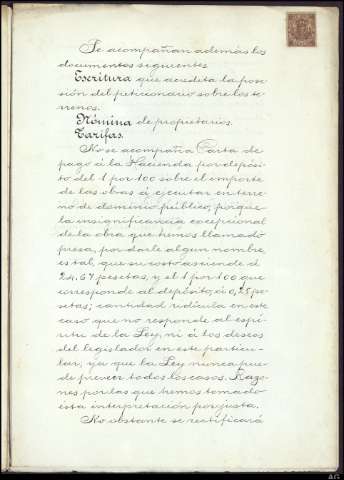 Se acompañan además los
documentos siguientes
Escritura que acredita la pose
sión del peticionario sobre los te
rrenos.
Nómina de propietarios.
Tarifas.
No se acompaña Carta de
pago á la Hacienda por depósi
to del 1 por 100 sobre el importe
de las obras á ejecutar en terre
no de dominio público, porque
la insignificancia excepcional
de la obra que hemos llamado
presa, por darle algun nombre,
es tal, que su costo asciende á
24.67 pesetas, y el 1 por 100 que
corresponde al depósito, á 0,25 pe
setas; cantidad ridícula en este
caso que no responde al espí-
ritu de la Ley, ni á los deseos
del legislador en este particu-
lar, ya que la Ley nunca pue-
de preveer todos los casos. Razo-
nes por las que hemos tomado
esta interpretación por justa.
No obstante se rectificará